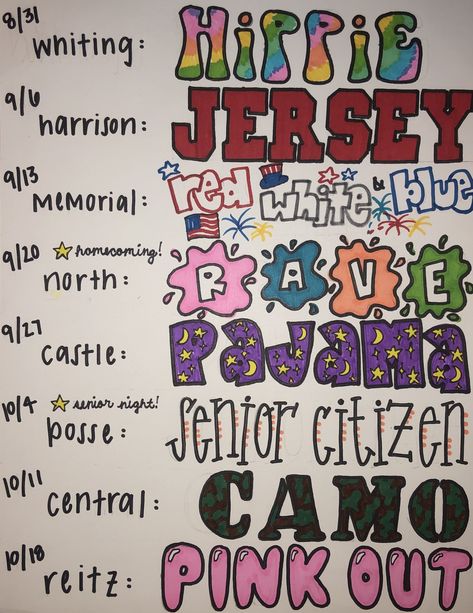 8/31 whiting: HiPPiE
9/6 harrison: JERSEY
9/13 memorial: red white & blue
9/20 ☆ homecoming!
north: RAVE
9/27 castle: PAJAMA
10/4 ☆ senior night!
posse: senior citizen
10/11 central: CAMO
10/18 reitz: PINK OUT